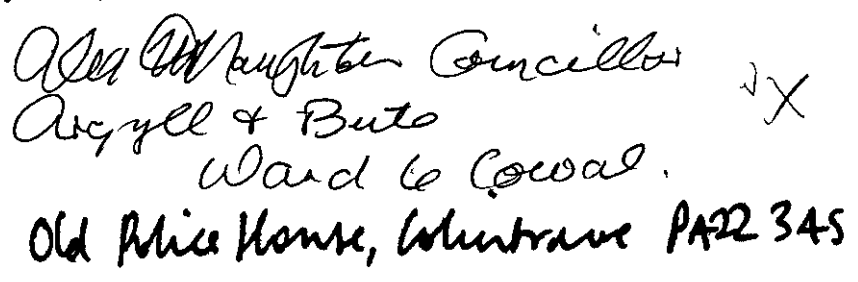 Alex McNaughton Councillor
Argyll & Bute
Ward 6 Cowal.
Old Police House, Colintraive PA22 3AS